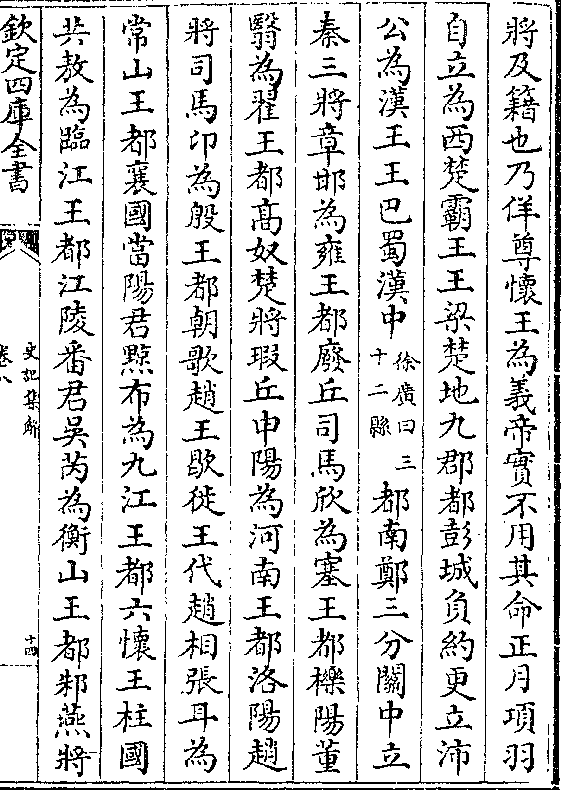 將及籍也乃佯尊懷王為義帝實不用其命正月項羽
自立為西楚霸王王梁楚地九郡都彭城負約更立沛
公為漢王王巴蜀漢中徐廣曰三十二縣都南鄭三分關中立
秦三將章邯為雍王都廢丘司馬欣為塞王都櫟陽董
翳為翟王都髙奴楚將瑕丘申陽為河南王都洛陽趙
將司馬卬為殷王都朝歌趙王歇徙王代趙相張耳為
常山王都襄國當陽君黥布為九江王都六懷王柱國
共敖為臨江王都江陵番君吳芮為衡山王都邾燕將
欽定四庫全書
史記集解
卷八
十四